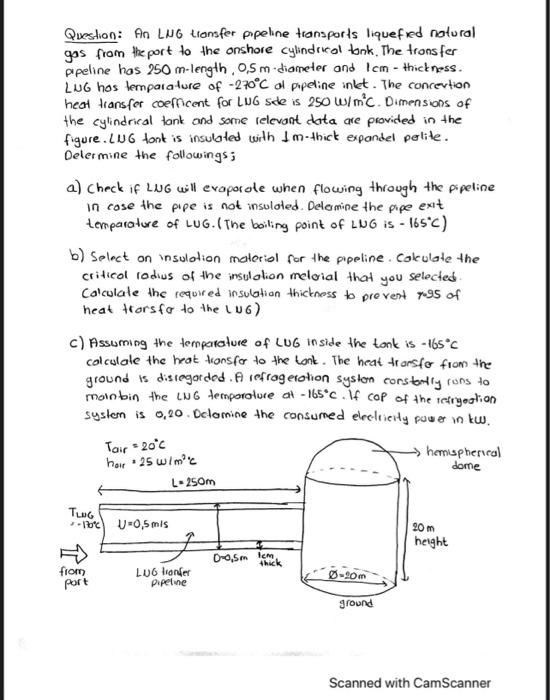 Question: An LNG transfer pipeline transports liquefied natural
gas from the port to the onshore cylindrical tank. The transfer
pipeline has 250 m-length, 0,5m-diameter and 1cm-thickness.
LNG has temparature of -270°C at pipeline inlet. The convection
heat transfer coefficent for LNG side is 250 W/m²C. Dimensions of
the cylindrical tank and some relevant data are provided in the
figure. LNG tank is insulated with 1m-thick expandel perlite.
Determine the followings;
a) Check if LNG will evaporate when flowing through the pipeline
in case the pipe is not insulated. Determine the pipe exit
temparature of LNG. (The boiling point of LNG is -165°C)
b) Select an insulation material for the pipeline. Calculate the
critical radius of the insulation meterial that you selected.
Calculate the required insulation thickness to prevent %95 of
heat transfer to the LNG)
c) Assuming the temparature of LNG inside the tank is -165°C
calculate the heat transfer to the tank. The heat transfer from the
ground is disregarded. A refrageration system constantly runs to
maintain the LNG temparature at -165°C. If COP of the refrigeration
system is 0,20. Determine the consumed electricity power in kW.
Tair = 20°C
hair = 25 W/m²°C
L=250m
hemispherical
dome
TLNG
U=0,5m/s
20m
height
D=0,5m
1cm
thick
from
port
LNG tranfer
pipeline
Ø=20m
ground
Scanned with CamScanner